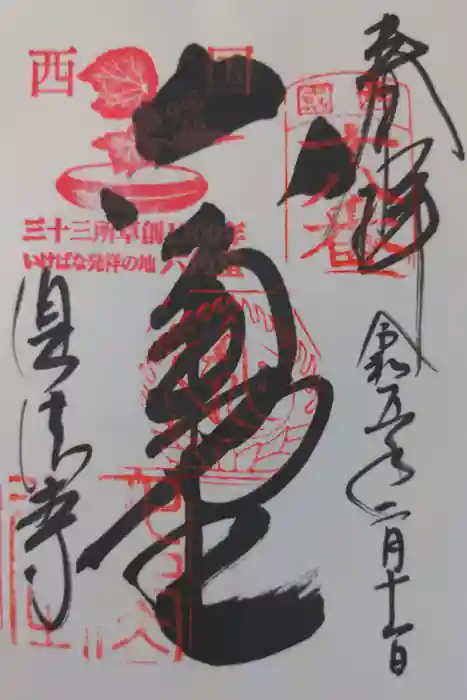 奉拝
西国
十八番
令和五年二月十一日
六角堂
西国
三十三所草創1300年
いけばな発祥の地 六角堂
頂法寺